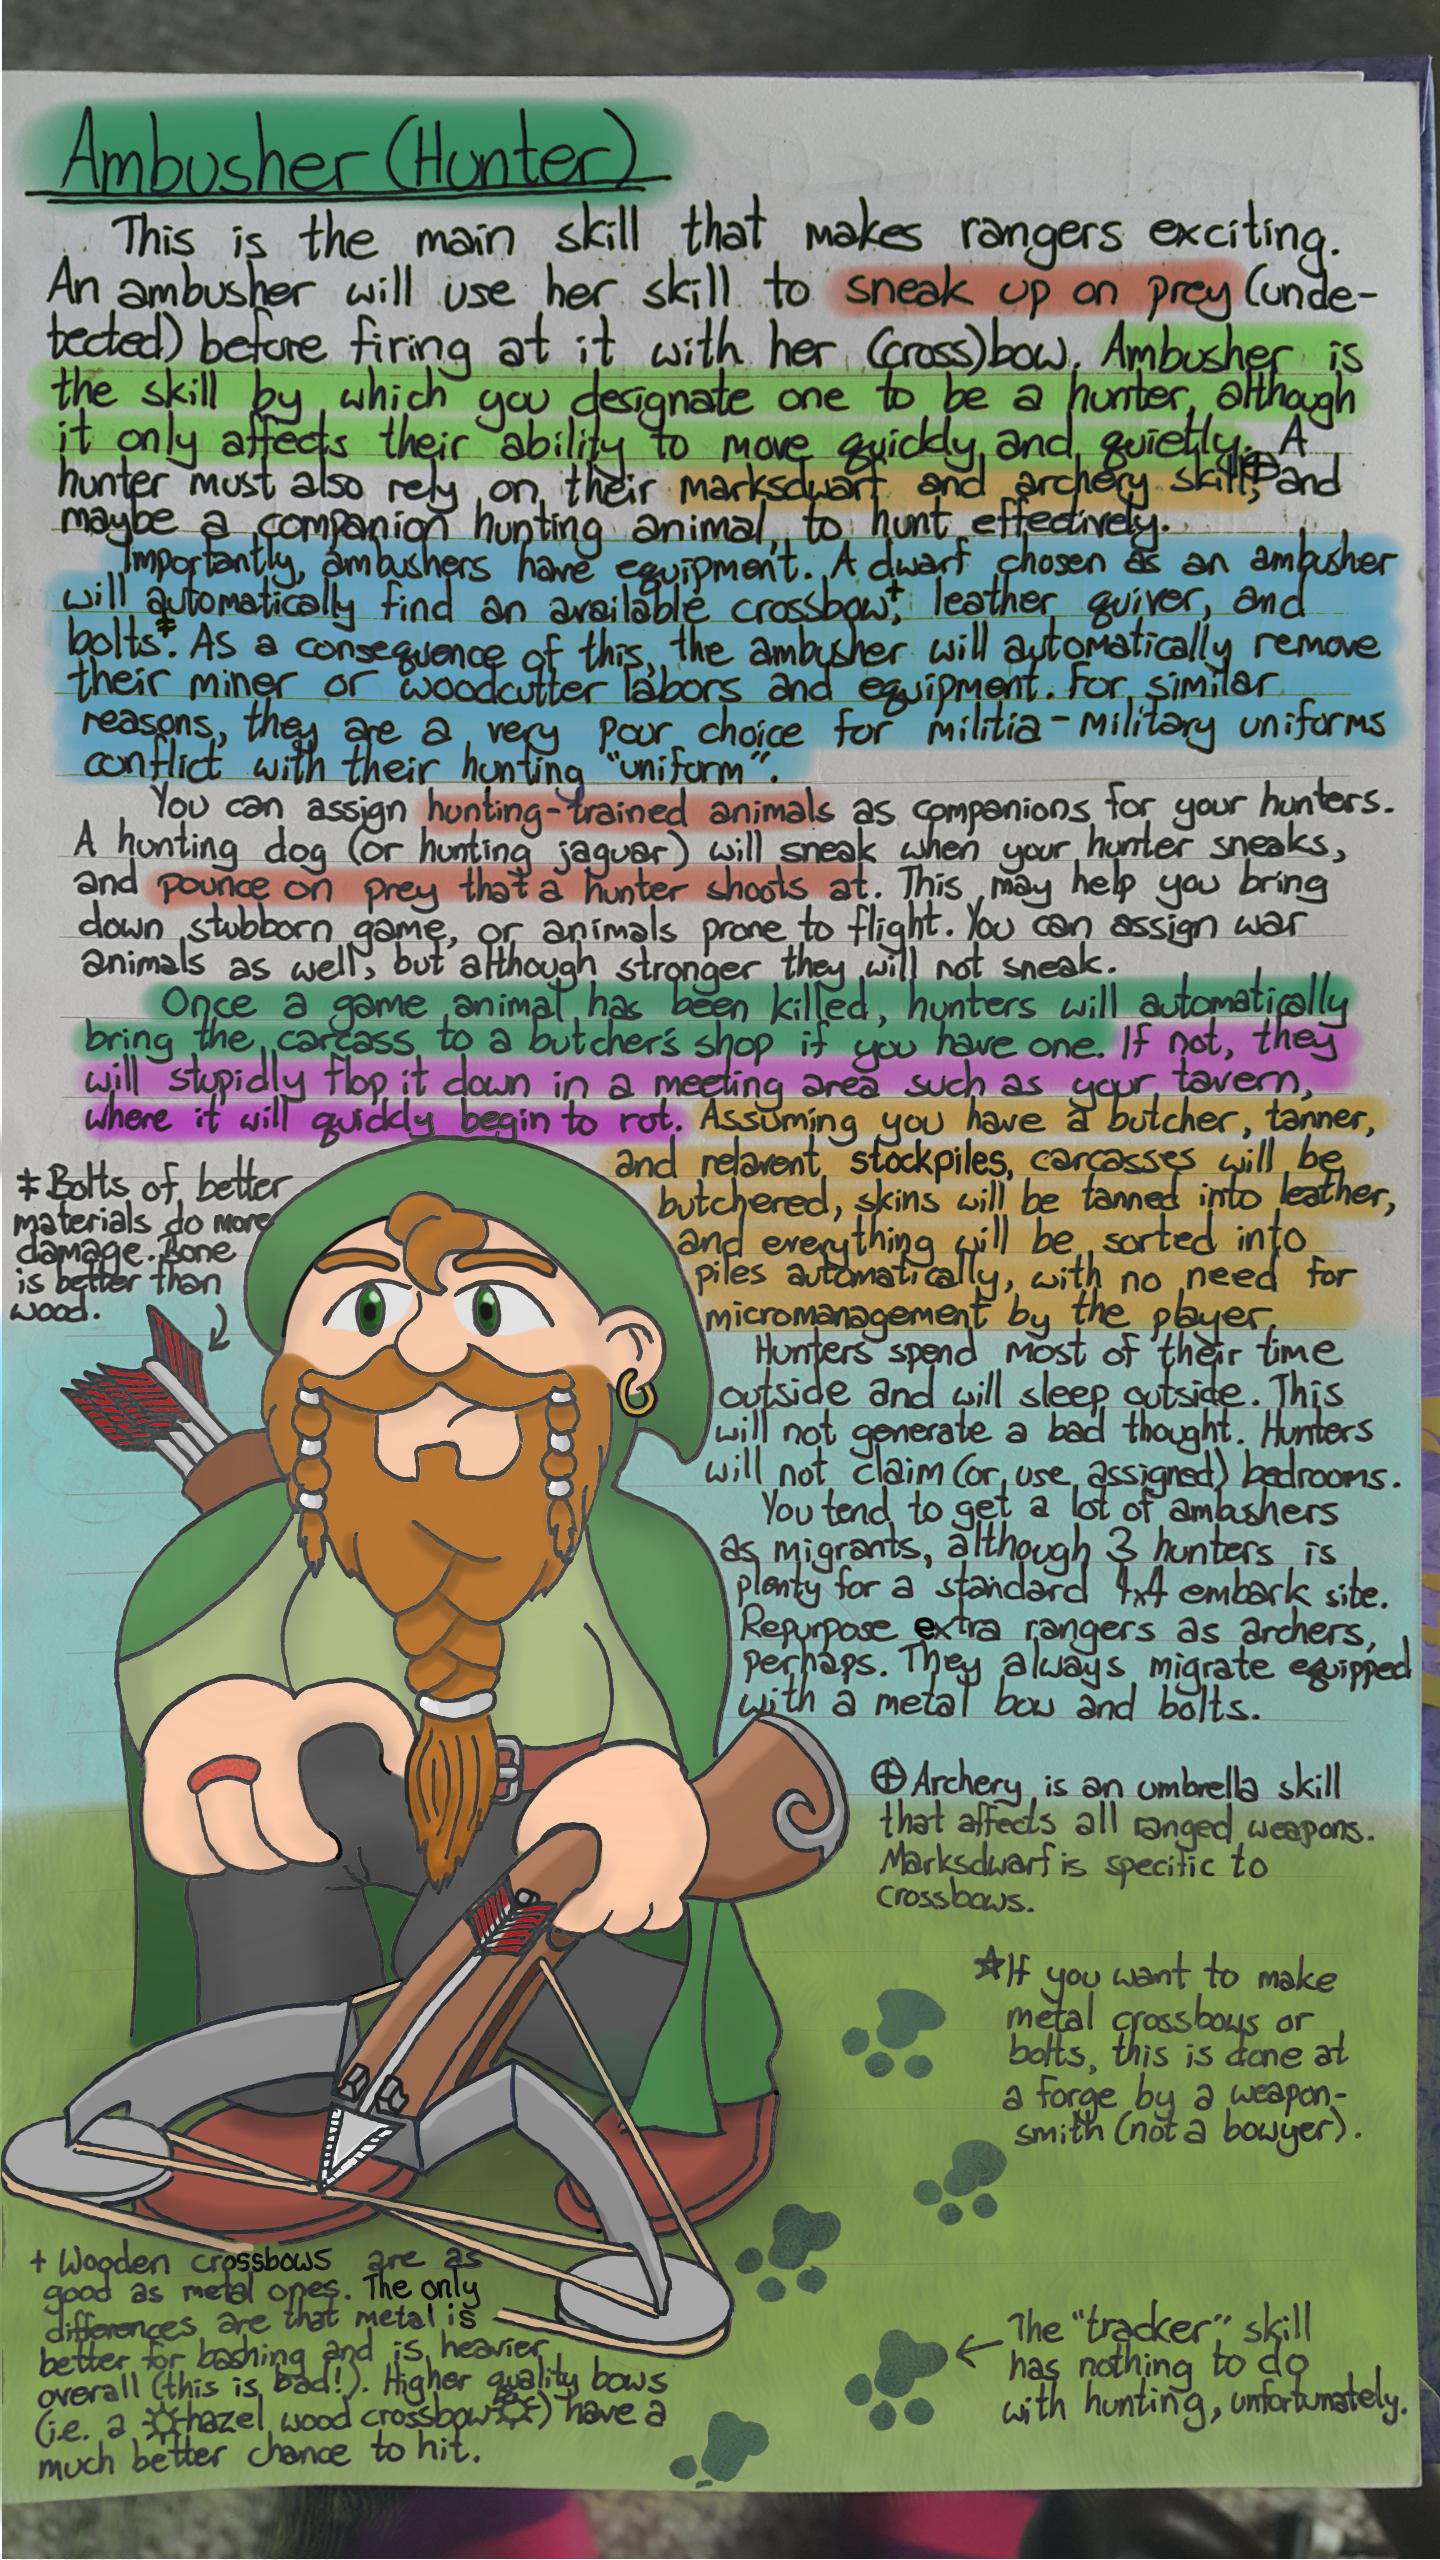 Ambusher (Hunter)
This is the main skill that makes rangers exciting.
An ambusher will use her skill to sneak up on prey (unde-
tected) before firing at it with her (cross)bow. Ambusher is
the skill by which you designate one to be a hunter, although
it only affects their ability to move quickly and quietly. A
hunter must also rely on their marksdwarf and archery skill,⊕ and
maybe a companion hunting animal, to hunt effectively.
Importantly, ambushers have equipment. A dwarf chosen as an ambusher
will automatically find an available crossbow†, leather quiver, and
bolts‡. As a consequence of this, the ambusher will automatically remove
their miner or woodcutter labors and equipment. For similar
reasons, they are a very pour choice for militia - military uniforms
conflict with their hunting "uniform".
You can assign hunting-trained animals as companions for your hunters.
A hunting dog (or hunting jaguar) will sneak when your hunter sneaks,
and pounce on prey that a hunter shoots at. This may help you bring
down stubborn game, or animals prone to flight. You can assign war
animals as well, but although stronger they will not sneak.
Once a game animal has been killed, hunters will automatically
bring the carcass to a butcher's shop if you have one. If not, they
will stupidly flop it down in a meeting area such as your tavern,
where it will quickly begin to rot. Assuming you have a butcher, tanner,
and relavent stockpiles, carcasses will be
butchered, skins will be tanned into leather,
and everything will be sorted into
piles automatically, with no need for
micromanagement by the player.
‡ Bolts of better
materials do more
damage. Bone
is better than
wood.
Hunters spend most of their time
outside and will sleep outside. This
will not generate a bad thought. Hunters
will not claim (or use assigned) bedrooms.
You tend to get a lot of ambushers
as migrants, although 3 hunters is
plenty for a standard 4x4 embark site.
Repurpose extra rangers as archers,
perhaps. They always migrate equipped
with a metal bow and bolts.
⊕ Archery is an umbrella skill
that affects all ranged weapons.
Marksdwarf is specific to
crossbows.
☆ If you want to make
metal crossbows or
bolts, this is done at
a forge by a weapon-
smith (not a bowyer).
† Wooden crossbows are as
good as metal ones. The only
differences are that metal is
better for bashing and is heavier
overall (this is bad!). Higher quality bows
(i.e. a ☼hazel wood crossbow☼) have a
much better chance to hit.
The "tracker" skill
has nothing to do
with hunting, unfortunately.